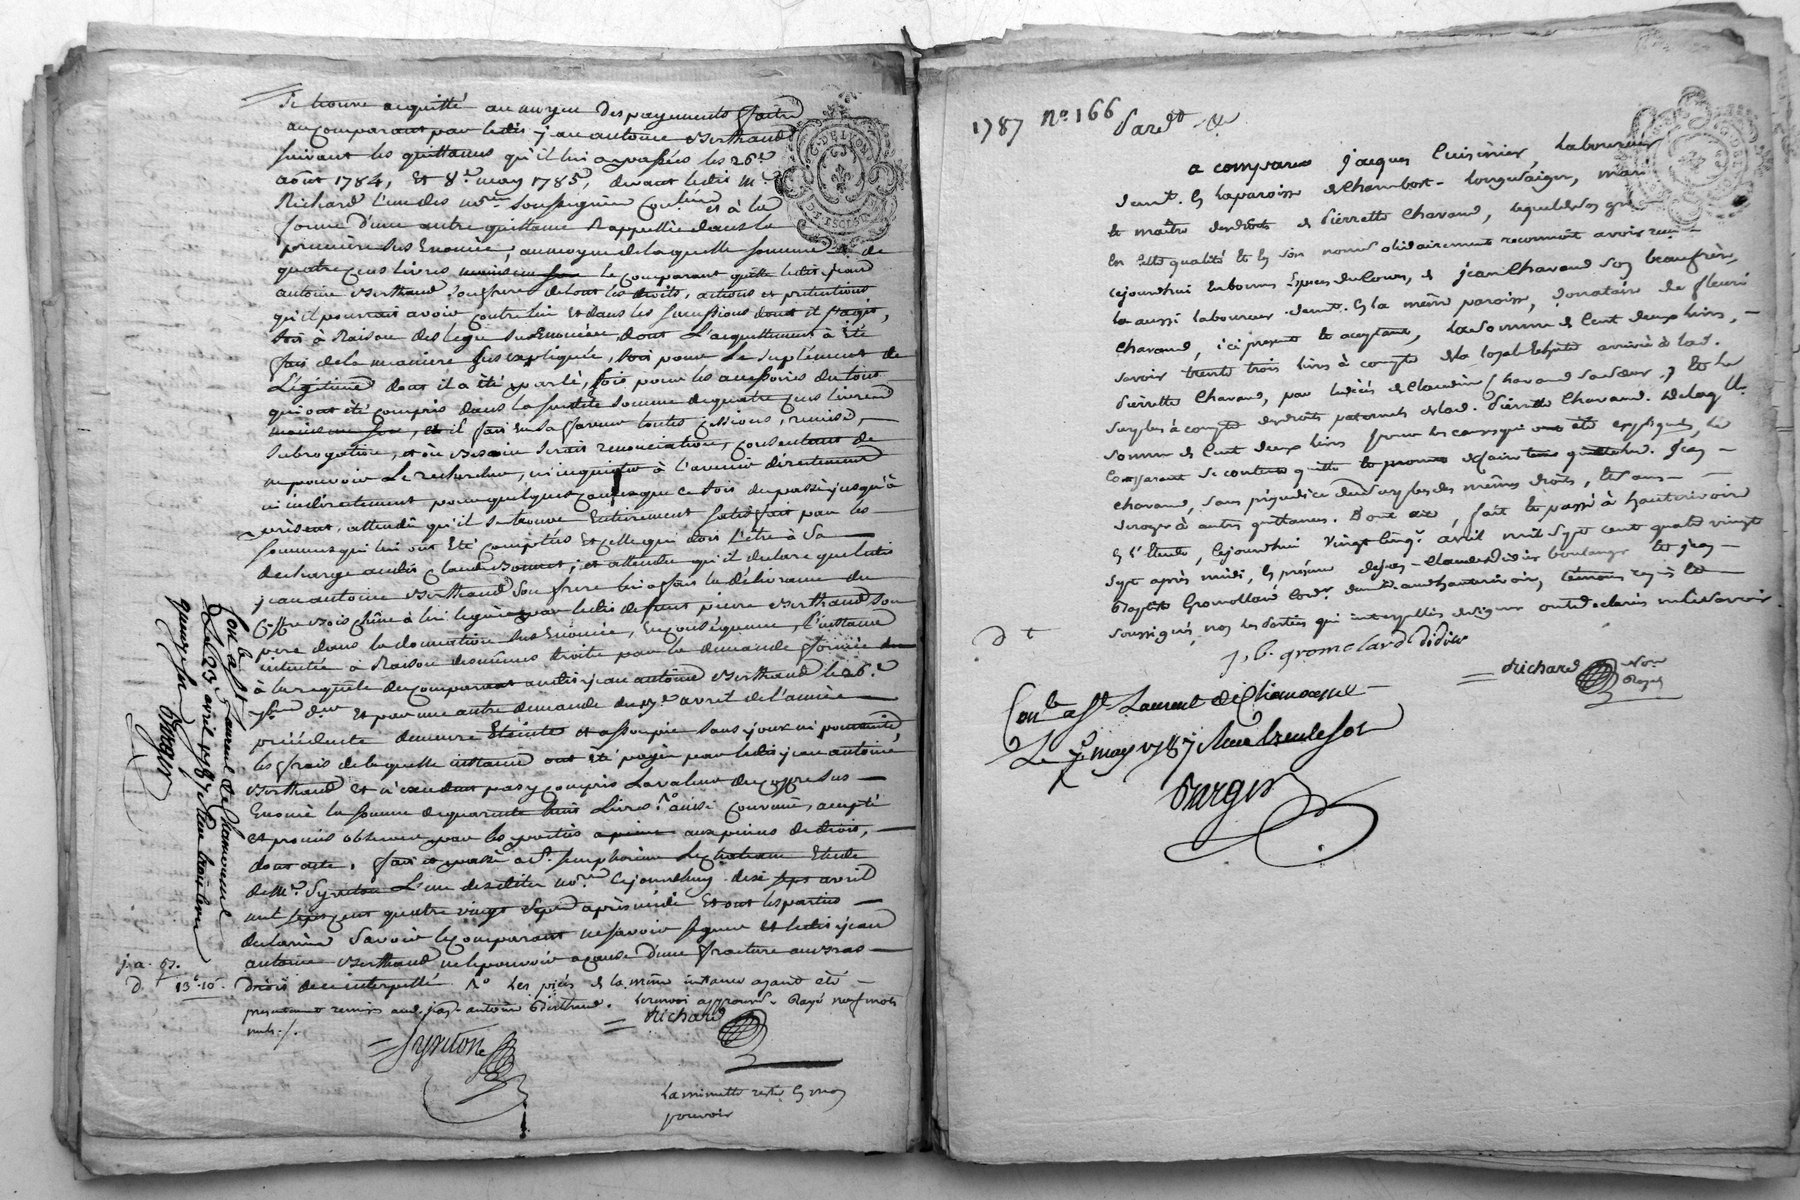 Se trouve acquitté au moyen des payements faits
au comparant par ledit jean antoine Berthaud
suivant les quittances qu'il lui a passées les 26e
août 1784, Et 8e may 1785, devant ledit me
Richard l'un des nores soussignés et à la
forme d'une autre quittance Rappellée dans la
première sus Enoncée, au moyen de laquelle somme de
quatre cens livres le comparant quitte ledit jean
antoine Berthaud son frere de tout les droits, actions et prétentions
qu'il pourrait avoir contre lui Et dans les successions dont il s'agit,
soit à Raison des legs susEnoncés dont L'acquittement à Eté
fait de la maniere sus expliquée, soit pour le suplément de
Légitime dont il a été parlé, soit pour les accessoires du tout
qui ont été compris dans la susdite somme de quatre cens livres
il fait En sa faveur toutes cessions, remise,
subrogation, et où besoin serait renonciation, consentant de
ne pouvoir Le rechercher, ni inquieter à l'avenir directement
ni indirectement pour quelques causes que ce soit du passé jusqu'à
présent, attendu qu'il se trouve Entierement satisfait par les
sommes qui lui ont Eté comptées Et celle qui doit l'être à Sa
decharge audit Claude Bonnet; et attendu qu'il declare que ledit
jean antoine Berthaud Son frere lui a fait la délivrance du
Coffre bois chêne à lui légué par ledit defunt pierre Berthaud son
pere dans la donnation sus Enoncée, En conséquence, l'instance
intentée à Raison desmêmes droits par la demande formée
à la requête du comparant audit jean antoine Berthaud le 26e
Et par une autre demande du 17e avril de l'année
précédente demeure Eteinte et assoupie sans y pouvoir
les frais de laquelle instance ont été payés par ledit jean antoine
Berthaud Et n'excedent pas y compris La valeur du coffre sus
Enoncé la somme de quarante huit Livres. ainsi Convenu, accepté
et promis observer par les parties a peine aux peines de droit,
dont acte. fait et passé a St Simphorien Le chateau Etude
de Me Syveton L'un desdites nores cejourdhuy dix sept avril
mil sept cent quatre vingt Sept après midi Et ont les parties
declarées Savoir le comparant ne savoir signer et ledit jean
antoine Berthaud ne le pouvoir a cause d'une fracture au bras
droit de ce interpellé. Les pièces de la même instance ayant été
présentement remises aud. jean antoine Berthaud. Le renvoi approuvé. Rayé neuf mots
nuls./.
Syveton
Richard
La minutte reste En mon
pouvoir
Conlé a St Laurent de Chamousset
Le 23 avril 1787
Barger
d
13 10
G. DE LYON
1787 No. 166
Pardt &
a comparu jacques Cuisinier, laboureur
demt. En la paroisse de Chambost-longuesaigne, mari
et maitre desdroits de Pierrette Chavand, lequel de son gré
En cette qualité et En son nom solidairement reconnoit avoir reçu
cejourdhui En bonnes Espèces du cours, de jean Chavand son beaufrère,
la aussi laboureur demt. En la même paroisse, donataire de fleuri
Chavand, ici present et acceptant, la somme de Cent deux livres,
savoir trente trois livres à compte de la loyale Echute arrivée à lad.
Pierrette Chavand, par le décès de Claudine Chavand sa sœur, et le
surplus à compte desdroits paternels de lad. Pierrette Chavand. De laqlle
somme de Cent deux livres pour les causes qui ont été expliqués, le
comparant se contente quitte et promet de faire tenir quitte led. jean
chavand, sans préjudice du surplus des mêmes droits, et sans
déroger à autres quittances. Dont acte, fait et passé à hauterivoire
En l'Etude, cejourdhui Vingt cinqe avril mil Sept cent quatre vingt
Sept après midi, En présence de sieurs Claude Didier boulanger et jean
baptiste Gromollard cordr. demt. aud. hauterivoire, témoins requis et
soussignés, non les parties qui interpellées de signer ont déclarés ne le savoir.
d t
j. b. gromolard Didier
Richard Nore
Royal
Conlé a St Laurent de Chamousset
Le 7 may 1787
Barger